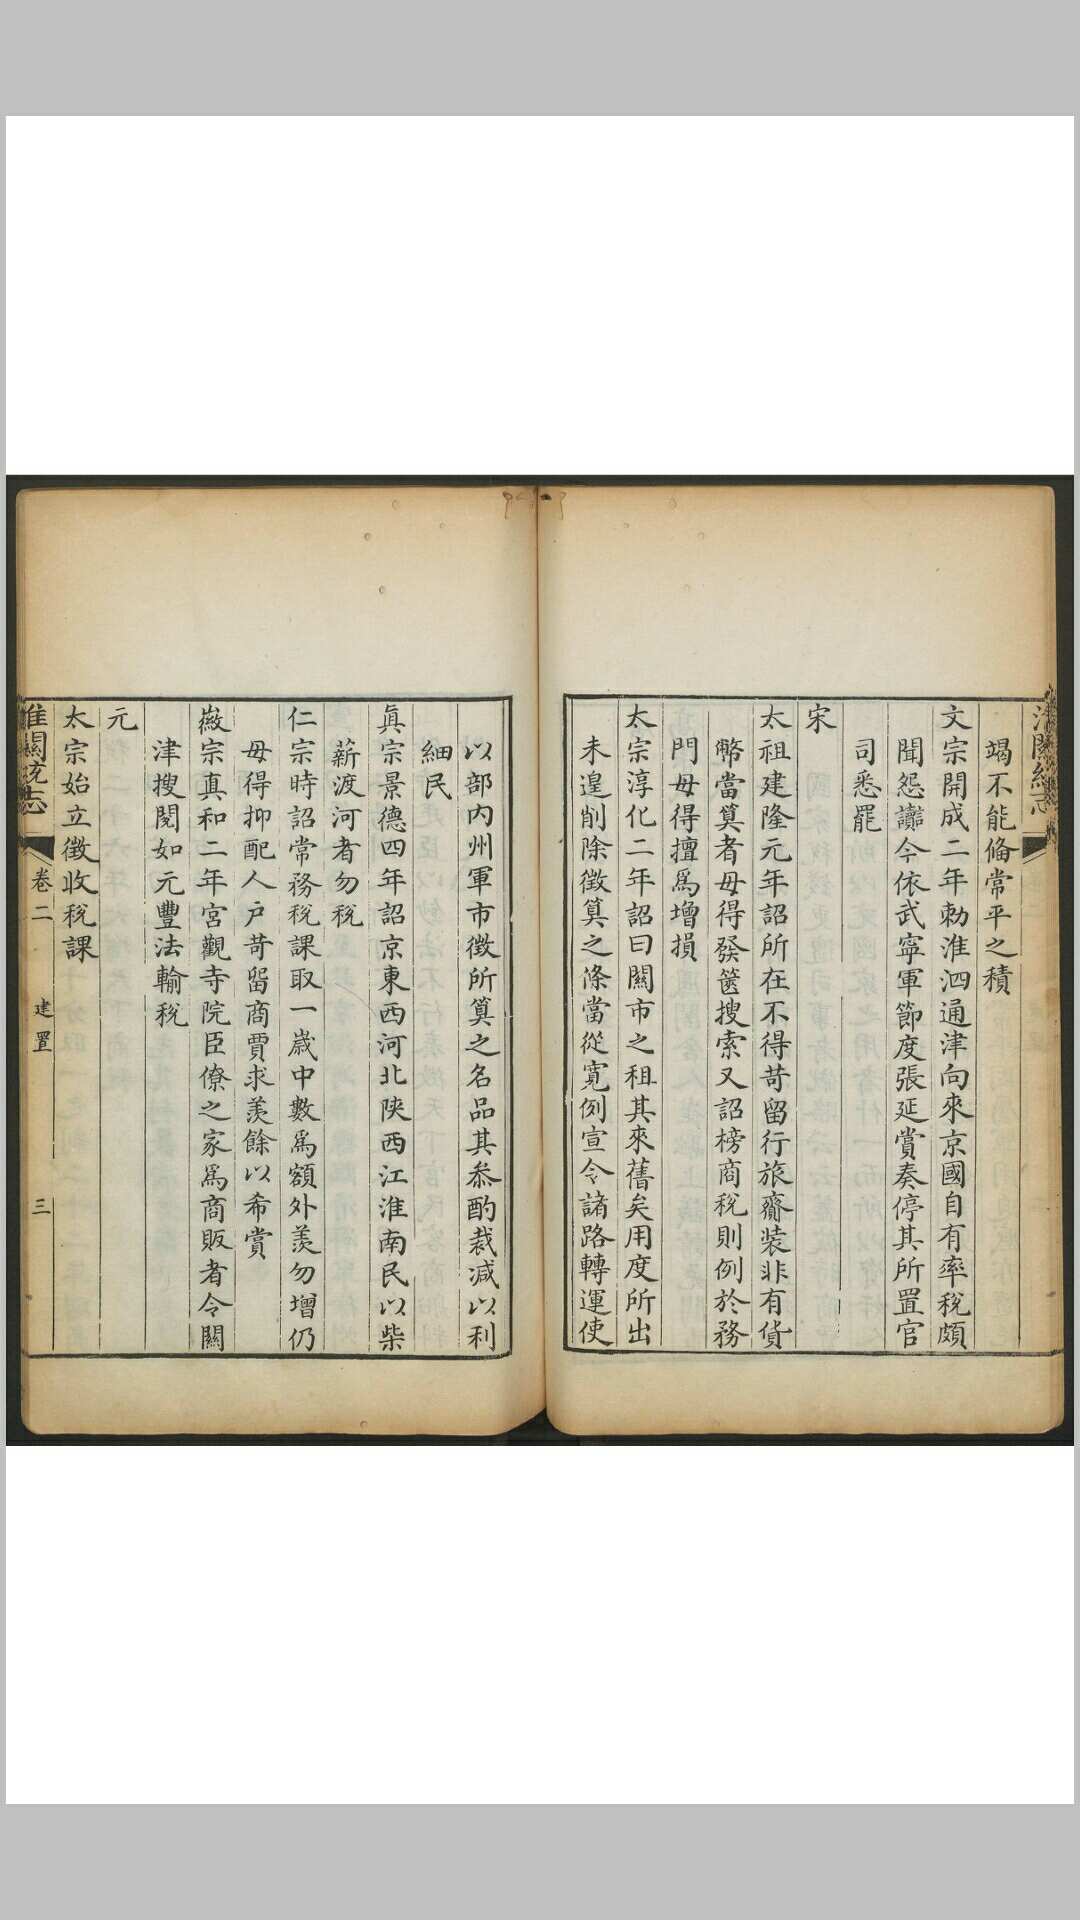 竭不能偹常平之積
文宗開成二年勅淮泗通津向來京國自有率稅頗
聞怨讟今依武寧軍節度張延賞奏停其所置官
司悉罷
宋
太祖建隆元年詔所在不得苛留行旅齎裝非有貨
幣當算者毋得發篋搜索又詔榜商稅則例於務
門毋得擅爲增損
太宗淳化二年詔曰關市之租其來舊矣用度所出
未遑削除徵算之條當從寬例宣令諸路轉運使
以部內州軍市徵所算之名品其叅酌裁減以利
細民
眞宗景德四年詔京東西河北陝西江淮南民以柴
薪渡河者勿稅
仁宗時詔常務稅課取一歲中數爲額外羨勿增仍
毋得抑配人户苛留商賈求羨餘以希賞
徽宗真和二年宮觀寺院臣僚之家爲商販者令關
津搜閱如元豐法輸稅
元
太宗始立徵收稅課
淮關統志
卷二
建置
三